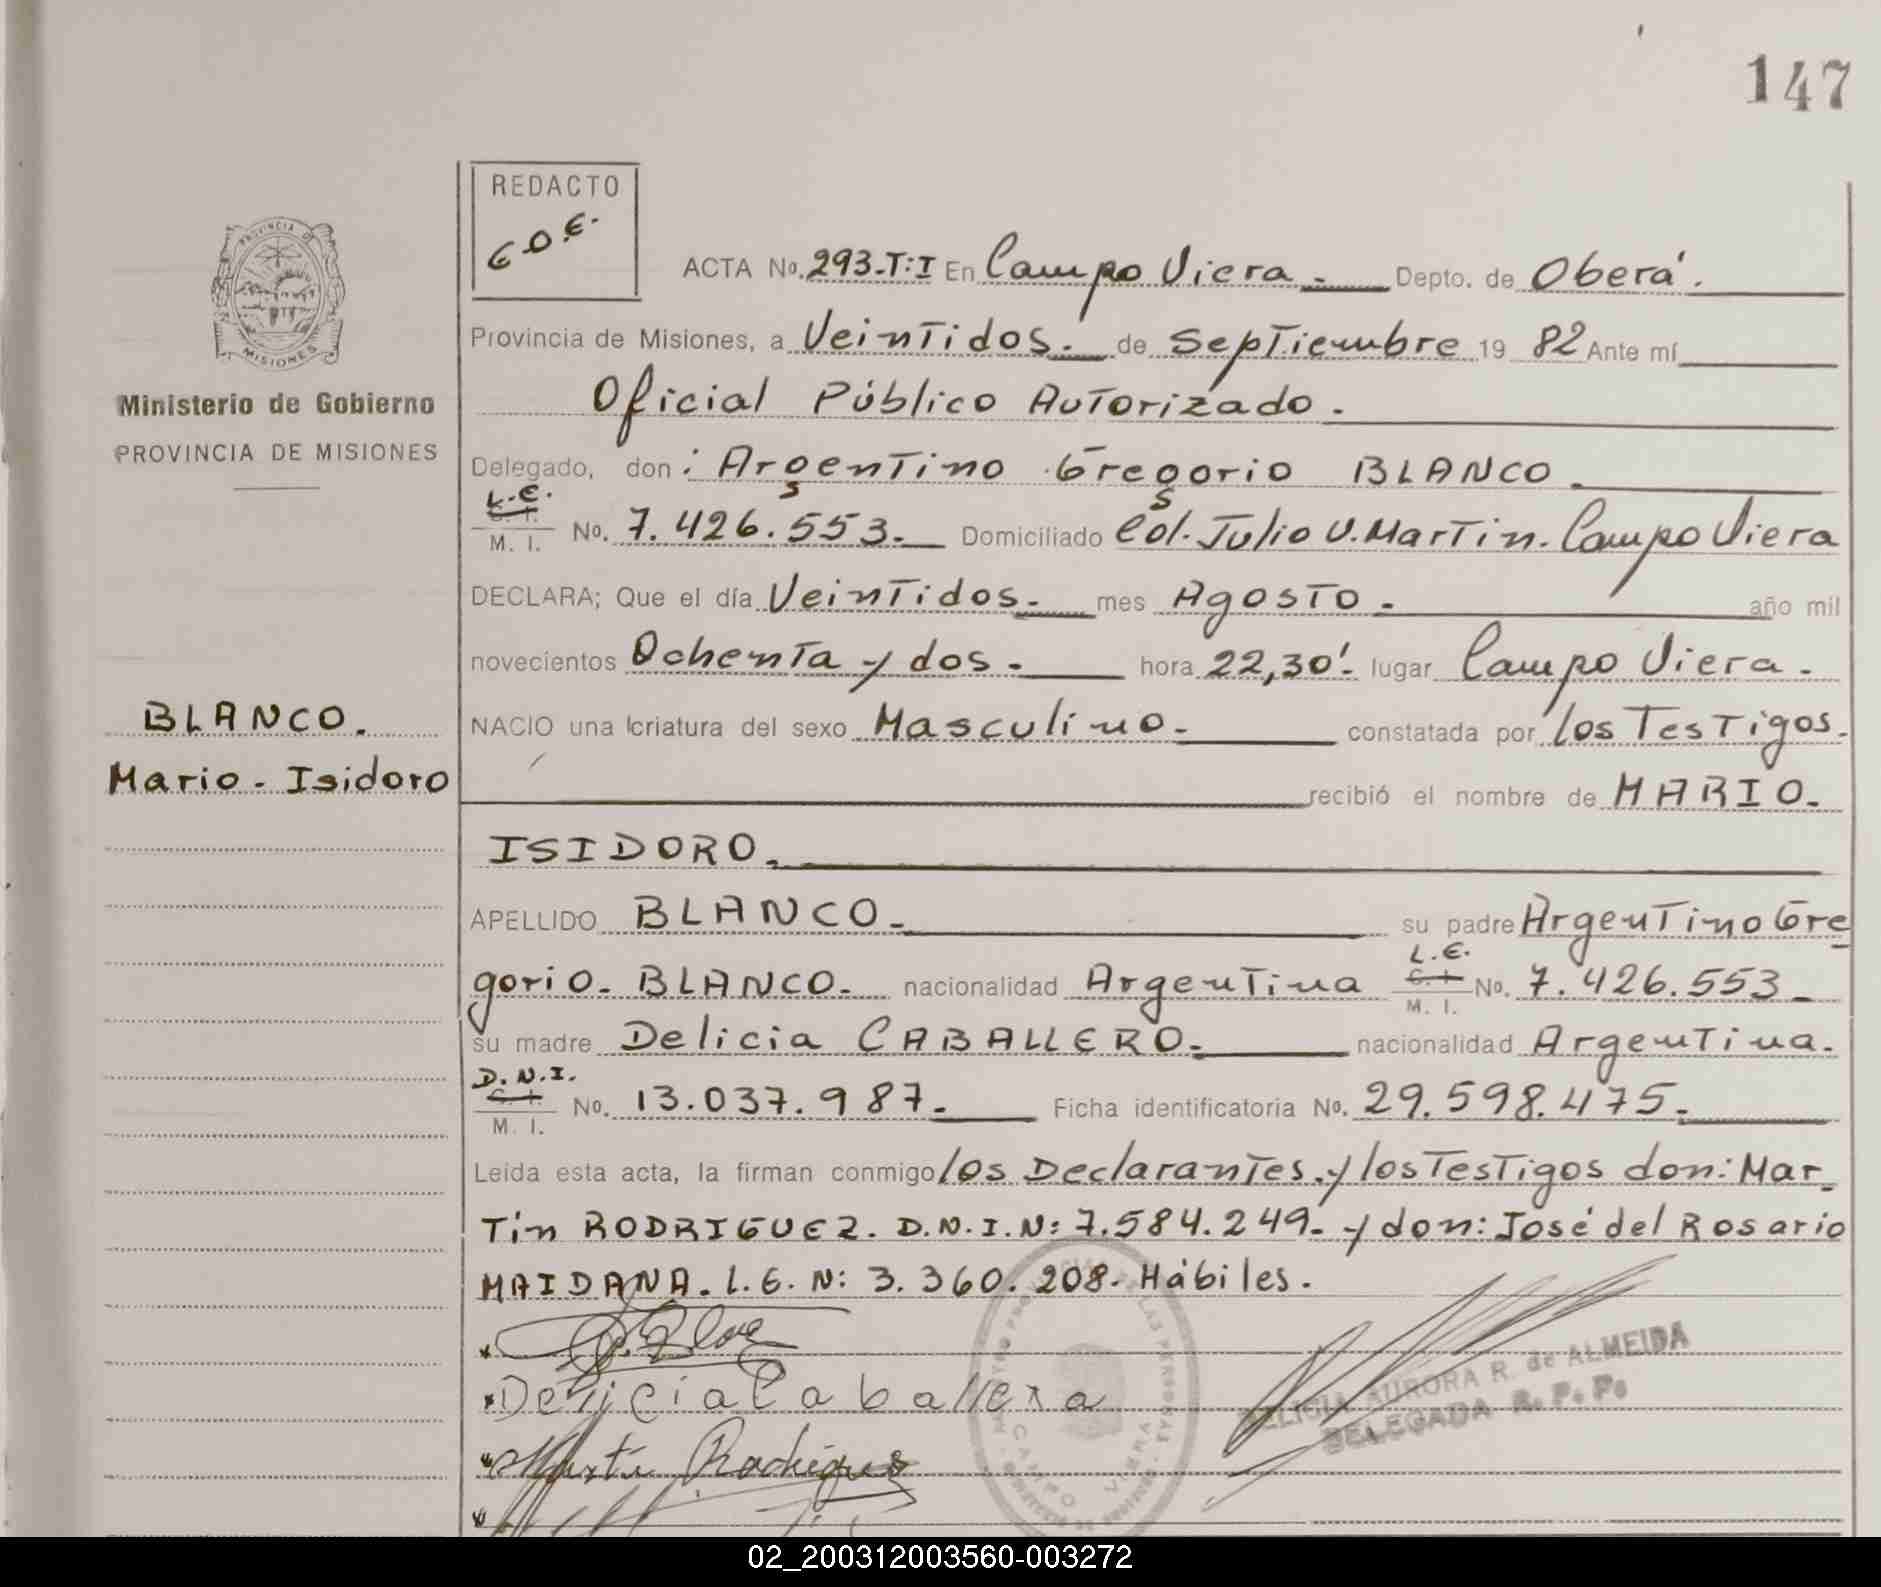 147
REDACTO
G D E.
PROVINCIA DE
MISIONES
Ministerio de Gobierno
PROVINCIA DE MISIONES
BLANCO.
Mario - Isidoro
ACTA No. 293-T:I En Campo Viera.- Depto. de Oberá.
Provincia de Misiones, a Veintidos.- de Septiembre 19 82 Ante mí
Oficial Público Autorizado.
Delegado, don: Argentino Gregorio BLANCO.
L.E.
C. I.
M. I. No. 7.426.553.- Domiciliado Col. Julio U. Martin. Campo Viera
DECLARA; Que el día Veintidos.- mes Agosto.- año mil
novecientos Ochenta y dos.- hora 22,30'.- lugar Campo Viera.
NACIO una criatura del sexo Masculino.- constatada por los Testigos.
recibió el nombre de MARIO.
ISIDORO.
APELLIDO BLANCO.- su padre Argentino Gre
gorio- BLANCO.- nacionalidad Argentina L.E. C. I. M. I. No. 7.426.553-
su madre Delicia CABALLERO.- nacionalidad Argentina.
D.N.I.
C. I.
M. I. No. 13.037.987.- Ficha identificatoria No. 29.598.475.-
Leída esta acta, la firman conmigo los Declarantes, y los Testigos don: Mar-
Tin RODRIGUEZ. D.N.I.N: 7.584.249.- y don: José del Rosario
MAIDANA. L.E. N: 3.360.208. Hábiles.
Delicia Caballera
Martin Rodriguez
CAMPO VIERA
DELICIA AURORA R. de ALMEIDA
DELEGADA R. P. P.
02_200312003560-003272